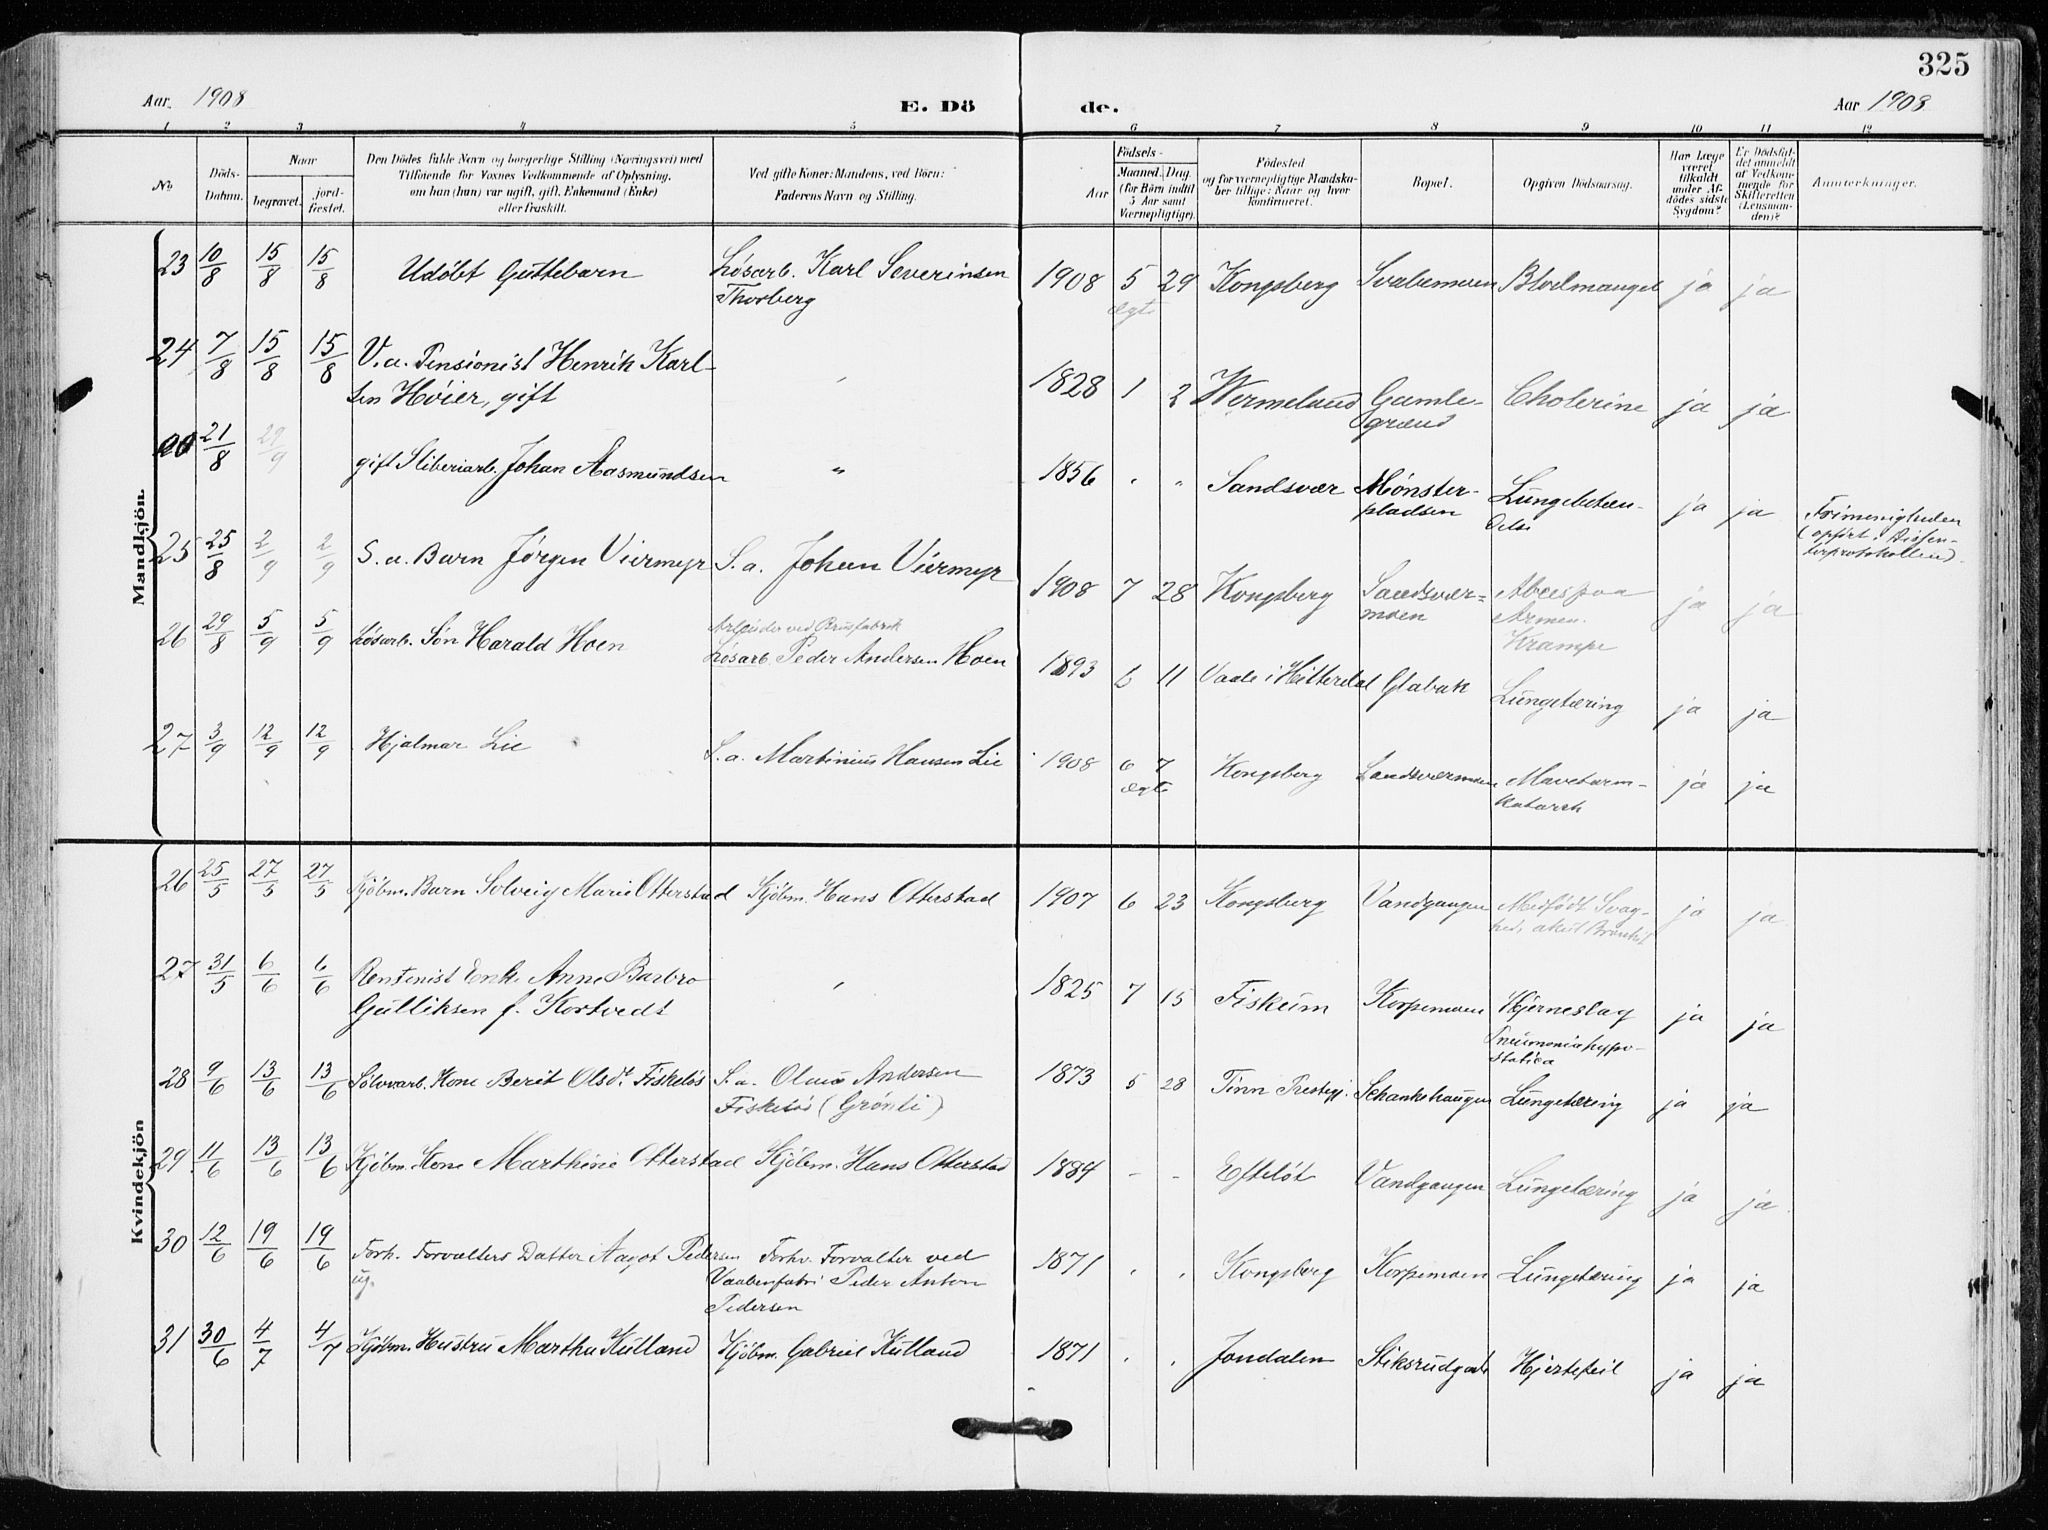 325
Aar 1908 E. Dö de. Aar 1908
1 2 3 4 5 6 7 8 9 10 11 12
No
Döds-
Datum.
Naar
begravet.
jord-
fæstet.
Den Dödes fulde Navn og borgerlige Stilling (Næringsvei) med
Tilföiende for Voxnes Vedkommende af Oplysning,
om han (hun) var ugift, gift, Enkemand (Enke)
eller fraskilt.
Ved gifte Koner: Mandens, ved Börn:
Faderens Navn og Stilling.
Födsels-
Aar
Maaned. Dag.
(for Börn indtil
5 Aar samt
Værnepligtige).
Födested
og for værnepligtige Mandska-
ber tillige: Naar og hvor
konfirmeret.
Bopæl.
Opgiven Dödsaarsag.
Har Læge
været
tilkaldt
under Af-
dödes sidste
Sygdom?
Er Dödsfal-
det anmeldt
af Vedkom-
mende for
Skifteretten
(Lensman-
den)?
Anmærkninger.
Mandkjön.
23 10/8 15/8 15/8 Udöbt Guttebarn Løsarb. Karl Severinsen 1908 5 29 Kongsberg Svabemoen Blodmangel ja ja
Thorberg ægte
24 7/8 15/8 15/8 V.a. Pensionist Henrik Karl- 1828 1 2 Wermeland Gamle- Cholerine ja ja
sen Høier, gift grænd
21/8 29/9 gift Sliberiarb. Johan Aasmundsen " 1856 " " Sandsvær Mønster- Lungebetæn- ja ja Frimenigheden
pladsen delse (opført i Dissen-
terprotokollen).
25 25/8 2/9 2/9 S.a. Barn Jörgen Viermyr S.a. Johan Viermyr 1908 7 28 Kongsberg Sandsvær- Abces paa ja ja
moen Armen.
Krampe
26 29/8 5/9 5/9 Løsarb. Søn Harald Hoen Arbeider ved Brusfabrik
Løsarb. Peder Andersen Hoen 1893 6 11 Vaale i Hitterdal Glabak Lungetæring ja ja
27 3/9 12/9 12/9 Hjalmar Lie S.a. Martinius Hansen Lie 1908 6 7 Kongsberg Sandsværmoen Mavetarm- ja ja
ægte katarrh
Kvindekjön
26 25/5 27/5 27/5 Kjöbm. Barn Solveig Marie Otterstad Kjöbm. Hans Otterstad 1907 6 23 Kongsberg Vandgangen Medfødt Svag- ja ja
hed, akut Bronkit
27 31/5 6/6 6/6 Rentenist Enke Anne Barbro 1825 7 15 Fiskum Korpemoen Hjerneslag ja ja
Gulliksen f. Kortvedt Pneumonia hypo-
statica
28 9/6 13/6 13/6 Sölvarb. Kone Berit Olsdt. Fiskeløs S.a. Olaus Andersen 1873 5 28 Tinn Prestegj. Schankehaugen Lungetæring ja ja
Fiskeløs (Grønli)
29 11/6 13/6 13/6 Kjöbm. Kone Marthine Otterstad Kjöbm. Hans Otterstad 1884 - - Efteløt Vandgangen Lungetæring ja ja
30 12/6 19/6 19/6 Forh. Forvalters Datter Aagot Pedersen Forhv. Forvalter ved 1871 Kongsberg Korpemoen Lungetæring ja ja
ug. Vaabenfabri Peder Anton
Pedersen
31 30/6 4/7 4/7 Kjöbm. Hustru Martha Kulland Kjöbm. Gabriel Kulland 1871 Jondalen Stiksrudgade Hjertefeil ja ja